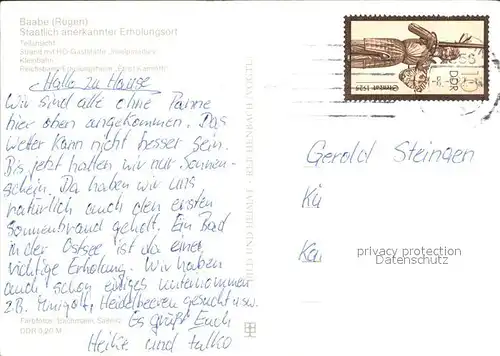 Baabe (Rügen)
Staatlich anerkannter Erholungsort
Teilansicht
Strand mit HO-Gaststätte
Kleinbahn
Hallo zu Hause
Wir sind alle ohne Panne
hier oben angekommen. Das
Wetter kann nicht besser sein.
Bis jetzt hatten wir nur Sonnen-
schein. Da haben wir uns
natürlich auch den ersten
Sonnenbrand geholt. Ein Bad
in der Ostsee ist da eine
richtige Erholung. Wir haben
auch schon einiges unternommen
z.B. Minigolf, Heidelbeeren gesucht u.s.w.
Es grüßt Euch
Heike und Falko
DDR 0,20 M
BILD UND HEIMAT REICHENBACH (VOGTL)
DDR
Gerold Steingen
Kü
Ka
privacy protection
Datenschutz